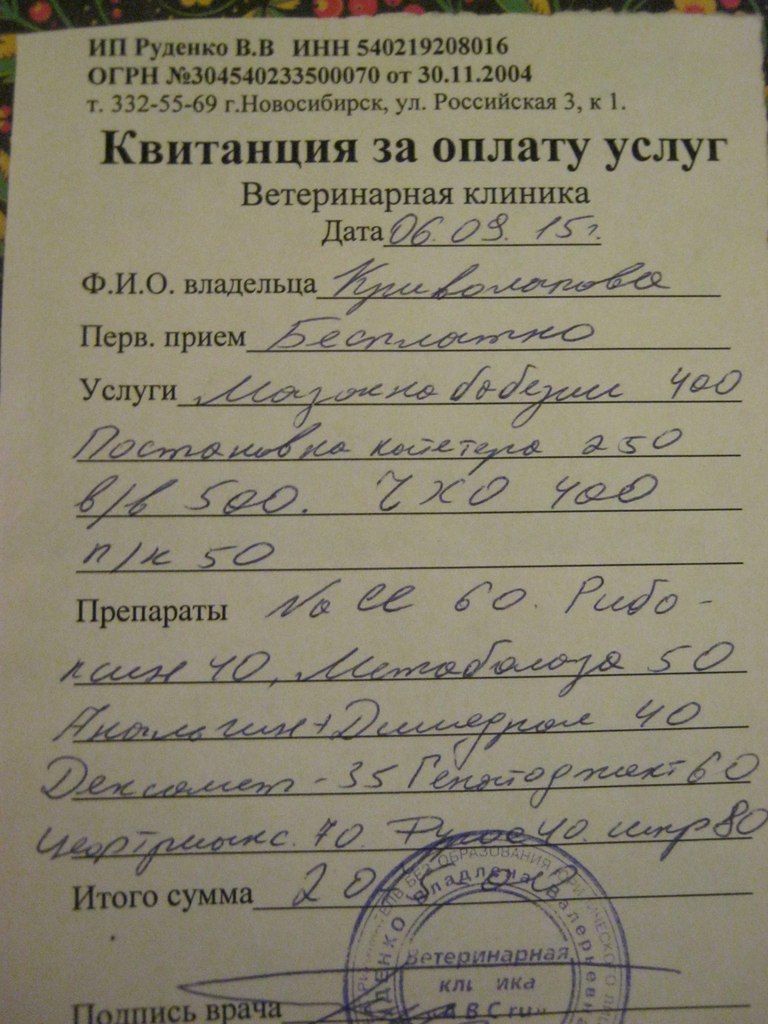 ИП Руденко В.В ИНН 540219208016
ОГРН №304540233500070 от 30.11.2004
т. 332-55-69 г.Новосибирск, ул. Российская 3, к 1.
Квитанция за оплату услуг
Ветеринарная клиника
Дата 06.09.15г.
Ф.И.О. владельца Криволапова
Перв. прием Бесплатно
Услуги Мазок на бабезии 400
Постановка катетера 250
в/в 500. ЧХО 400
п/к 50
Препараты NaCl 60. Рибо-
ксин 40, Метаболаза 50
Анальгин+Димедрол 40
Дексамет - 35 Гепатоджект 60
70. 40. шпр 80
Итого сумма
Подпись врача
Владлена Валерьевна
Ветеринарная